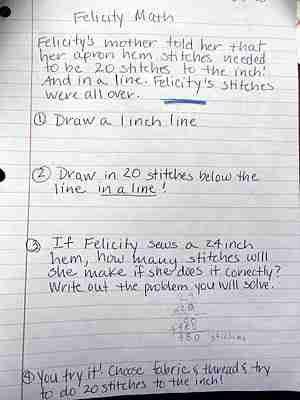 Felicity Math
Felicity's mother told her that
her apron hem stitches needed
to be 20 stitches to the inch!
And in a line. Felicity's stitches
were all over.
① Draw a 1 inch line
② Draw in 20 stitches below the
line in a line!
③ If Felicity sews a 24 inch
hem, how many stitches will
she make if she does it correctly?
Write out the problem you will solve.
480 stitches
④ You try it! Choose fabric & thread & try
to do 20 stitches to the inch!